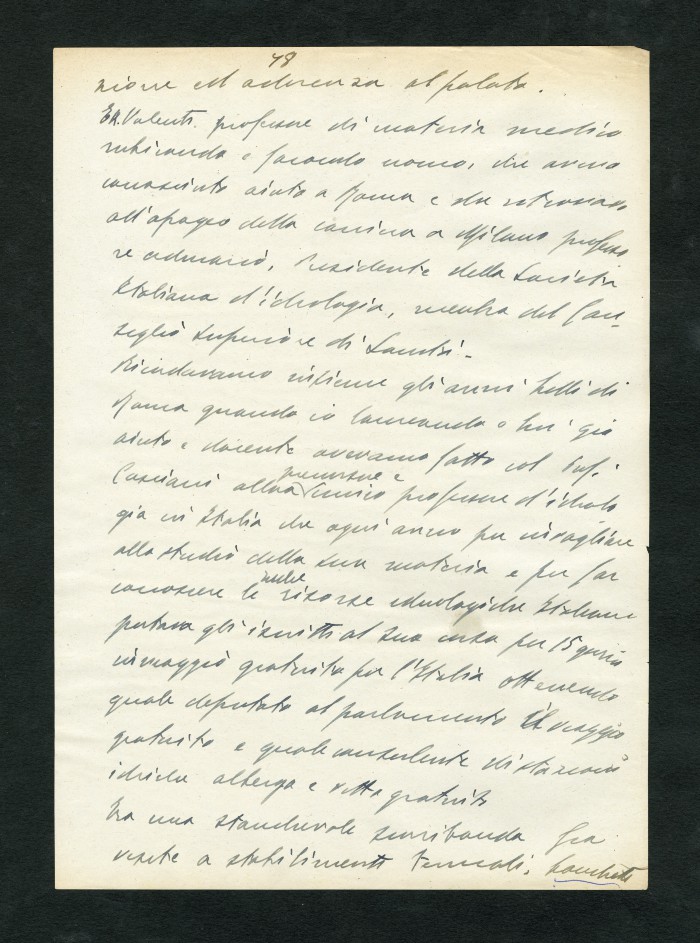 48
zione ed aderenza al palato.
Er. Valenti professore di materia medica
rubicondo e facondo uomo, che avevo
conosciuto aiuto a Roma e che ritrovavo
all'apogeo della carriera a Milano profess
re ordinario, Presidente della Società
Italiana d'idrologia, membro del Con-
seglio Superiore di Sanità.
Ricordavamo insieme gli anni belli di
Roma quando io laureando e lui già
aiuto e docente avevamo fatto col Prof.
Casciani allora
precursore e
unico professore d'idrolo
gia in Italia che ogni anno per invogliare
allo studio della sua materia e per far
conoscere le risorse idrologiche Italiane
portava gli iscritti al suo corso per 15 giorni
in viaggio gratuito per l'Italia ottenendo
quale deputato al parlamento il viaggio
gratuito e quale consulente di stazioni
idriche albergo e vitto gratuito
Era una stanchevole scorribanda fra
visite a stabilimenti termali,